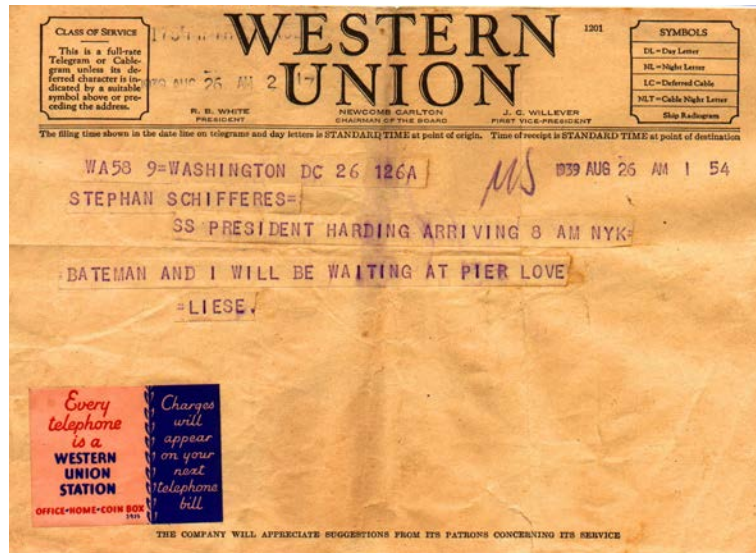 CLASS OF SERVICE
This is a full-rate
Telegram or Cable-
gram unless its de-
ferred character is in-
dicated by a suitable
symbol above or pre-
ceding the address.
WESTERN
UNION
1201
SYMBOLS
DL = Day Letter
NL = Night Letter
LC = Deferred Cable
NLT = Cable Night Letter
Ship Radiogram
1939 AUG 26 AM 2 17
R. B. WHITE
PRESIDENT
NEWCOMB CARLTON
CHAIRMAN OF THE BOARD
J. C. WILLEVER
FIRST VICE-PRESIDENT
The filing time shown in the date line on telegrams and day letters is STANDARD TIME at point of origin. Time of receipt is STANDARD TIME at point of destination
WA58 9=WASHINGTON DC 26 126A
1939 AUG 26 AM 1 54
STEPHAN SCHIFFERES=
SS PRESIDENT HARDING ARRIVING 8 AM NYK=
BATEMAN AND I WILL BE WAITING AT PIER LOVE
=LIESE.
Every
telephone
is a
WESTERN
UNION
STATION
OFFICE·HOME·COIN BOX
Charges
will
appear
on your
next
telephone
bill
THE COMPANY WILL APPRECIATE SUGGESTIONS FROM ITS PATRONS CONCERNING ITS SERVICE